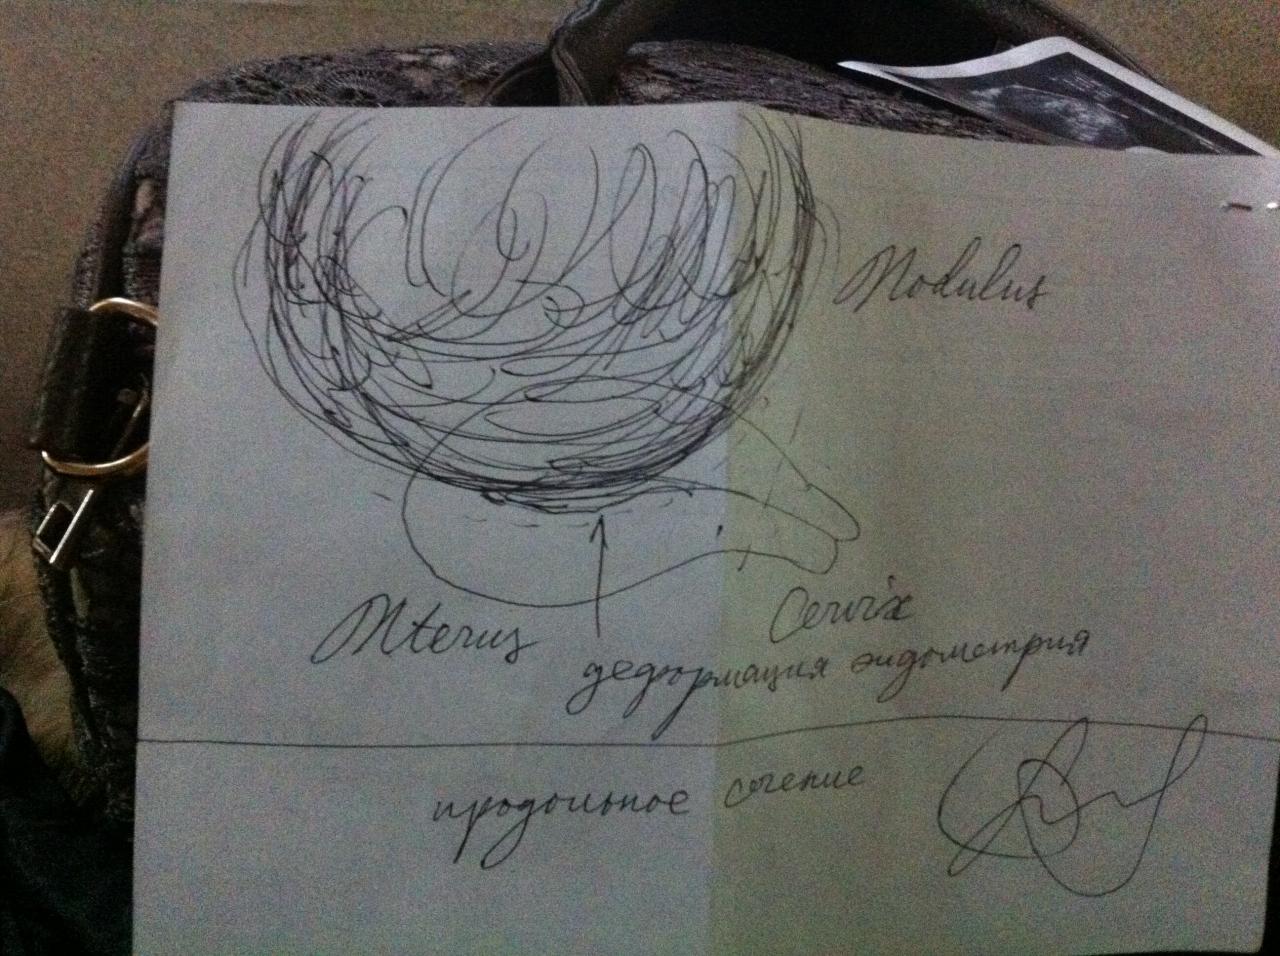 Nodulus
Uterus
Cervix
деформация эндометрия
продольное сечение